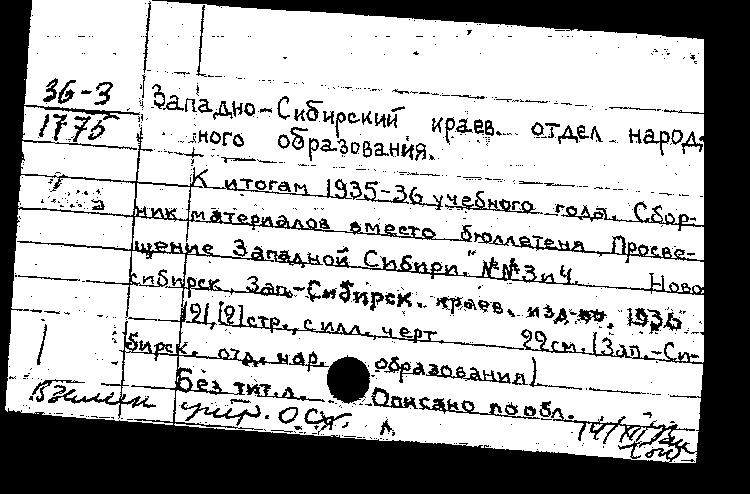 36-3
1775
Западно-Сибирский краев. отдел народ-
ного образования.
К итогам 1935-36 учебного года. Сбор-
ник материалов вместо бюллетеня „Просве-
щение Западной Сибири." №№3 и 4. Ново
сибирск, Зап.-Сибирск. краев. изд-во. 1936
121,[2]стр., с илл., черт. 22см. (Зап.-Си-
бирск. отд. нар. образования)
Без тит.л. Описано по обл.
Взамен